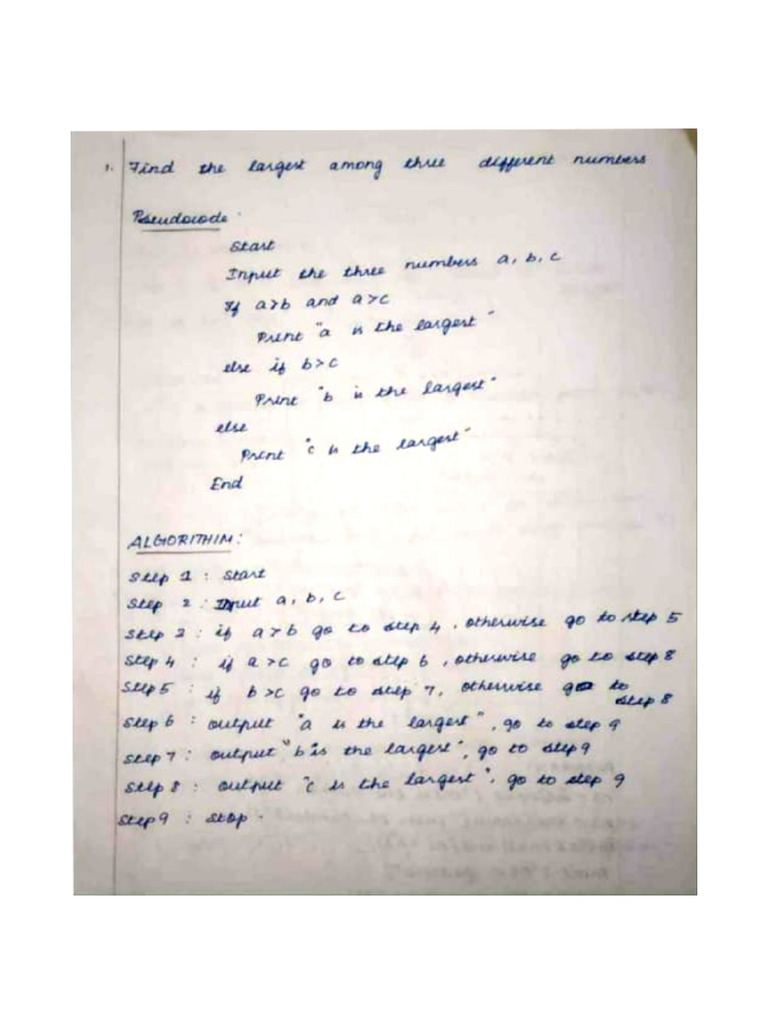 1. Find the largest among three different numbers
Pseudocode
Start
Input the three numbers a, b, c
If a>b and a>c
Print "a is the largest"
else if b>c
Print "b is the largest"
else
Print "c is the largest"
End
ALGORITHIM:
Step 1 : Start
Step 2 : Input a, b, c
Step 3 : if a>b go to step 4, otherwise go to step 5
Step 4 : if a>c go to step 6, otherwise go to step 8
Step 5 : if b>c go to step 7, otherwise go to
step 8
Step 6 : output "a is the largest", go to step 9
Step 7 : output "b is the largest", go to step 9
Step 8 : output "c is the largest", go to step 9
Step 9 : Stop.